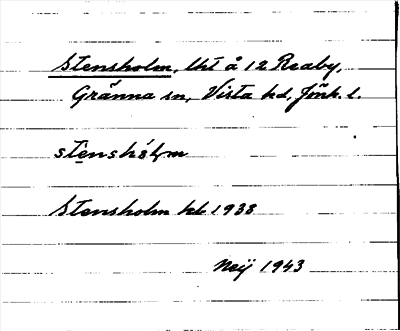 Stensholm, lht å 12 Reaby,
Gränna sn, Vista hd, Jönk. l.
stenshólm
Stensholm kb 1933
Neij 1943